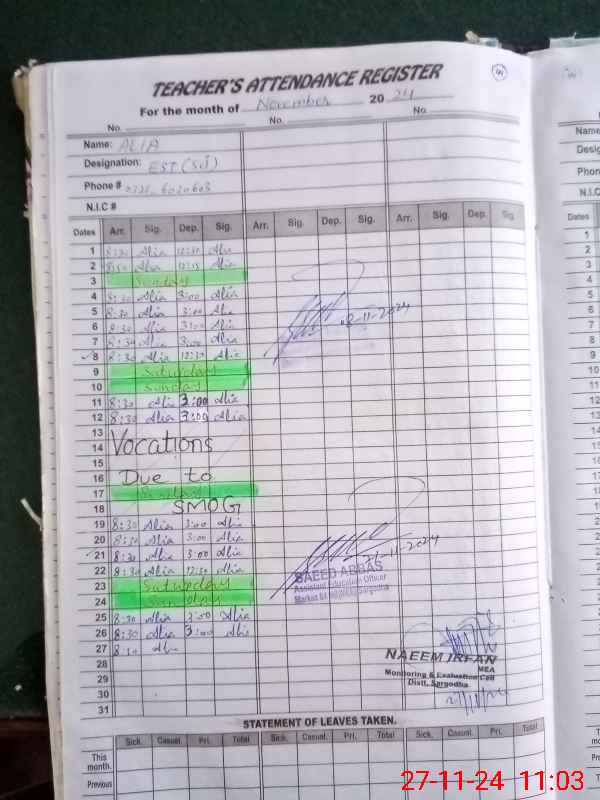 TEACHER'S ATTENDANCE REGISTER
For the month of November 20 24
No. No. No.
Name: ALIA
Designation: EST (SJ)
Phone #
N.I.C #
Dates Arr. Sig. Dep. Sig. Arr. Sig. Dep. Sig. Arr. Sig. Dep. Sig.
1 8:30 Alia 12:30 Alia
2 Alia Alia
3 Sunday
4 8:30 Alia 3:00 Alia
5 8:30 Alia 3:00 Alia
6 8:30 Alia 3:00 Alia
7 8:30 Alia 3:00 Alia
8 8:30 Alia 12:30 Alia
9 Saturday
10 Sunday
11 8:30 Alia 3:00 Alia
12 8:30 Alia 3:00 Alia
13
14 Vocations
15
16 Due to
17 Sunday
18 SMOG
19 8:30 Alia 3:00 Alia
20 8:30 Alia 3:00 Alia
21 8:30 Alia 3:00 Alia
22 8:30 Alia 12:30 Alia
23 Saturday
24 Sunday
25 8:30 Alia 3:00 Alia
26 8:30 Alia 3:00 Alia
27 8:30 Alia
28
29
30
31
-11-2024
21-11-2024
SAEED ABBAS
Assistant Education Officer
NAEEM IRFAN
MEA
Monitoring & Evaluation Cell
Distt. Sargodha
27/11/24
STATEMENT OF LEAVES TAKEN.
Sick. Casual. Pri. Total Sick. Casual. Pri. Total Sick. Casual. Pri. Total
This month.
Previous
Name
Desig
Phone
N.I.C
Dates
1
2
3
4
5
6
7
8
9
10
11
12
13
14
15
16
17
18
19
20
21
22
23
24
25
26
27
28
29
30
31
27-11-24 11:03